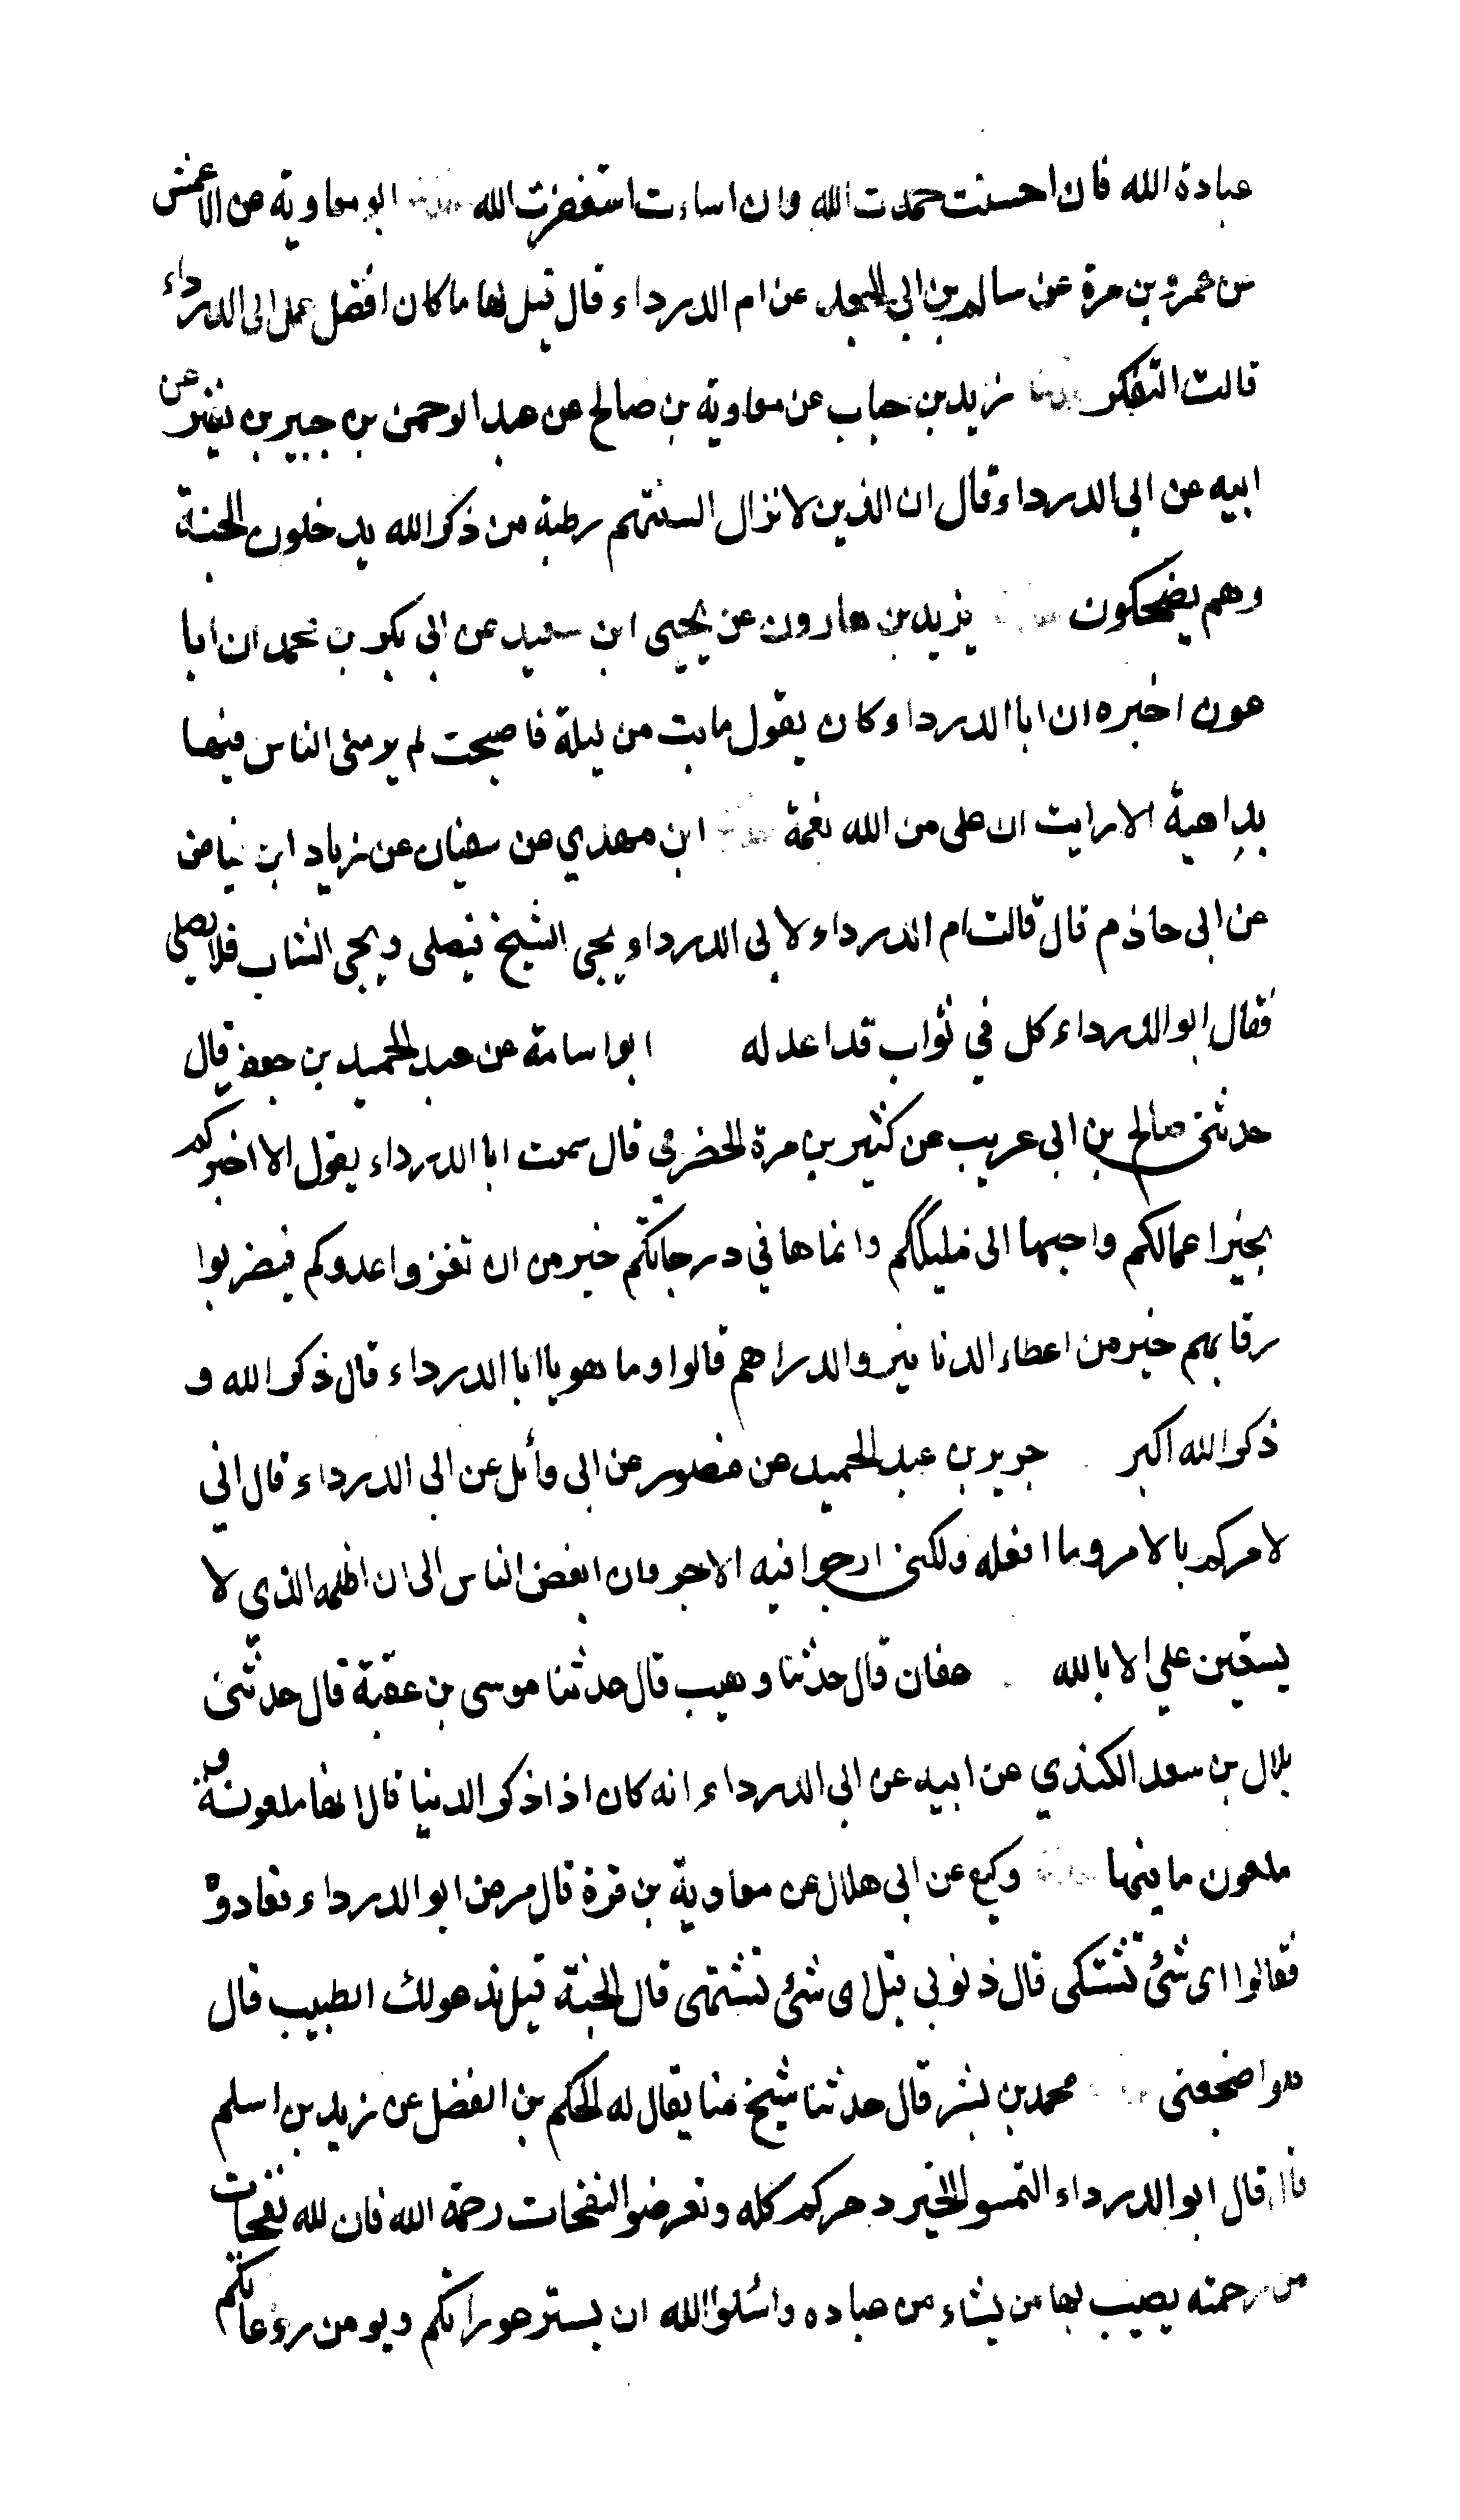 عبادة الله فان احسنت حمدت الله وان اساءت استغفرت الله ابو معاوية عن الاعمش
عن عمرو بن مرة عن سالم بن ابي الجعد عن ام الدرداء قال قيل لها ما كان افضل عمل ابى الدرداء
قالت التفكر زيد بن حباب عن معاوية بن صالح عن عبد الرحمن بن جبير بن نفير عن
ابيه عن ابي الدرداء قال ان الذين لا تزال السنتهم رطبة من ذكر الله يدخلون الجنة
وهم يضحكون يزيد بن هارون عن يحيى ابن سعيد عن ابى بكر بن محمد ان ابا
عون اخبره ان ابا الدرداء كان يقول ما بت من ليلة فاصبحت لم يرمنى الناس فيها
بداهية الا رايت ان على من الله نعمة ابن مهدي عن سفيان عن زياد ابن فياض
عن ابى حازم قال قالت ام الدرداء لابى الدرداء يجى الشيخ فيصلى ويجى الشاب فلا يصلى
فقال ابو الدرداء كل في ثواب قد اعد له ابو اسامة عن عبد الحميد بن جعفر قال
حدثنى صالح بن ابى عريب عن كثير بن مرة الحضرمي قال سمعت ابا الدرداء يقول الا اخبركم
بخير اعمالكم واحبها الى مليككم وانماها في درجاتكم خير من ان تغزوا عدوكم فيضربوا
رقابهم خير من اعطاء الدنانير والدراهم قالوا وما هو يا ابا الدرداء قال ذكر الله و
ذكر الله اكبر جرير بن عبد الحميد عن منصور عن ابى وائل عن ابى الدرداء قال انى
لامركم بالامر وما افعله ولكنى ارجوا فيه الاجر وان ابغض الناس الى ان اظلمه الذي لا
يستعين علي الا بالله عفان قال حدثنا وهيب قال حدثنا موسى بن عقبة قال حدثنى
بلال بن سعد الكندي عن ابيه عن ابى الدرداء انه كان اذا ذكر الدنيا قال انها ملعونة و
ملعون ما فيها وكيع عن ابى هلال عن معاوية بن قرة قال مرض ابو الدرداء فعادوه
فقالوا اى شئ تشتكى قال ذنوبى قيل اى شئ تشتهى قال الجنة قيل ندعو لك الطبيب قال
هو اضجعنى محمد بن بشر قال حدثنا شيخ منا يقال له الحكم بن الفضل عن زيد بن اسلم
قال قال ابو الدرداء التمسوا الخير دهركم كله وتعرضوا لنفحات رحمة الله فان لله نفحات
من رحمته يصيب بها من يشاء من عباده واسئلوا الله ان يستر عوراتكم ويومن روعاتكم